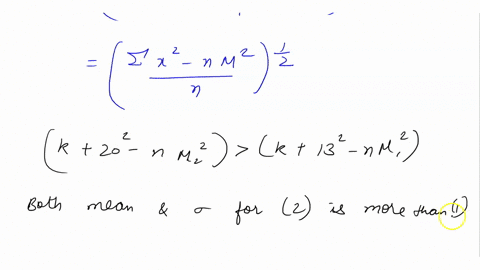 = (Σ x² - n M² / n)^1/2
(k + 20² - n M₂²) > (k + 13² - n M₁²)
Both mean & σ for (2) is more than (1)